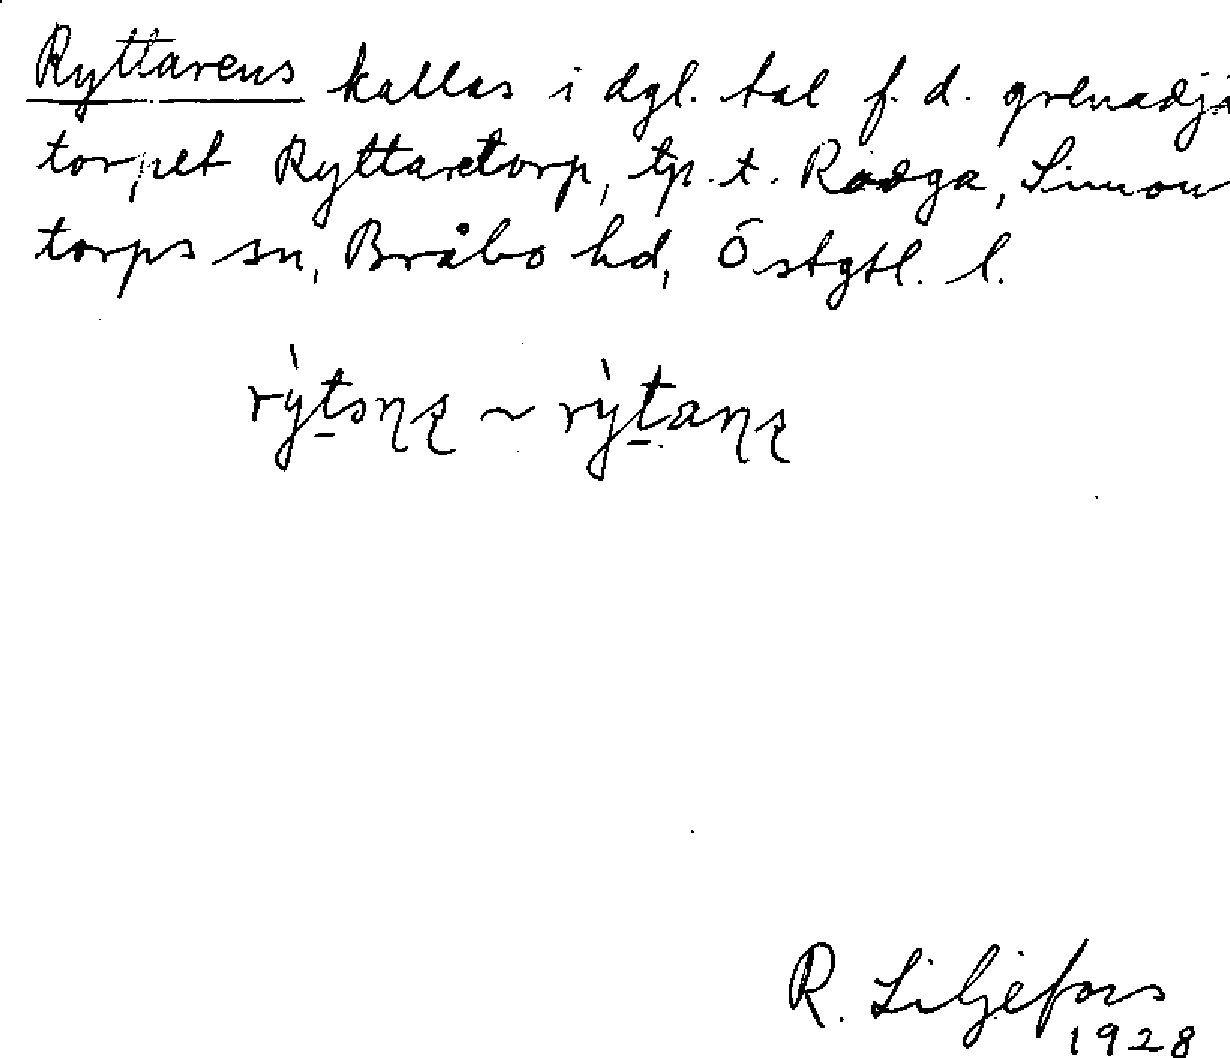 Ryttarens kallas i dgl. tal f. d. grenadjä
torpet Ryttaretorp, tp. t. Rodga, Simon
torps sn, Bråbo hd, Östgtl. l.
R. Liljefors
1928